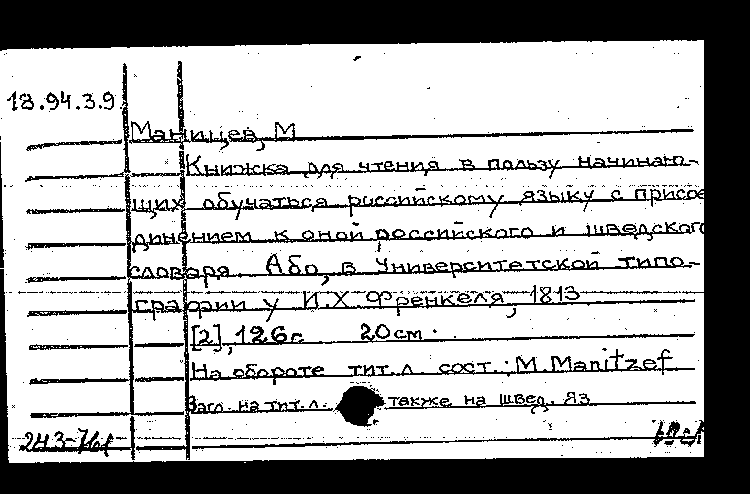 18.94.3.9
Маницев, М
Книжка для чтения в пользу начинаю-
щих обучаться российскому языку с присое
динением к оной российского и шведского
словаря. Або, в Университетской типо-
графии у И.Х Френкеля, 1813
[2], 126с 20см.
На обороте тит.л. сост.: M. Manitzef
Загл. на тит.л. также на швед. яз